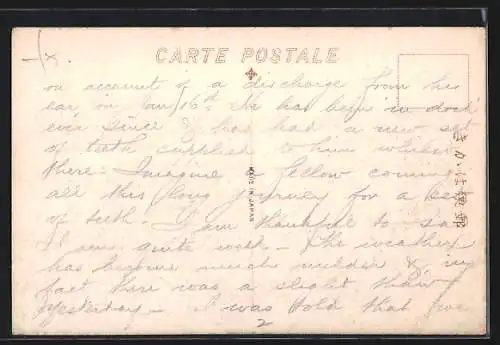 CARTE POSTALE
on account of a discharge from his
ear on Jan 16th. He has been in dock
ever since & has had a new set
of teeth supplied to him whilst
there. Imagine a fellow coming
all this long journey for a set
of teeth. I am thankful to say
I am quite well - The weather
has become much milder & in
fact there was a slight thaw
yesterday - I was told that we
2
MADE IN JAPAN